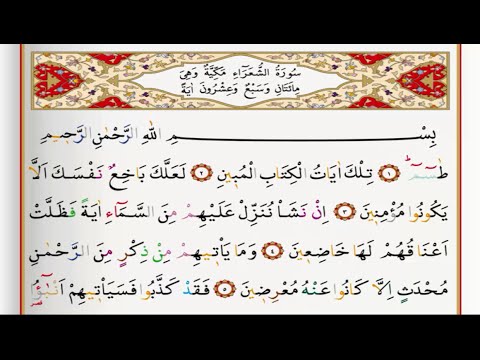 سُورَةُ الشُّعَرَٓاءِ مَكِّيَّةٌ وَهِيَ
مِائَتَانِ وَسَبْعٌ وَعِشْرُونَ اٰيَةً
بِسْمِ اللهِ الرَّحْمٰنِ الرَّحِيمِ
طٰسٓمٓ ۚ ﴿١﴾ تِلْكَ اٰيَاتُ الْكِتَابِ الْمُبِينِ ﴿٢﴾ لَعَلَّكَ بَاخِعٌ نَفْسَكَ اَلَّا
يَكُونُوا مُؤْمِنِينَ ﴿٣﴾ اِنْ نَشَأْ نُنَزِّلْ عَلَيْهِمْ مِنَ السَّمَٓاءِ اٰيَةً فَظَلَّتْ
اَعْنَاقُهُمْ لَهَا خَاضِعِينَ ﴿٤﴾ وَمَا يَأْتِيهِمْ مِنْ ذِكْرٍ مِنَ الرَّحْمٰنِ
مُحْدَثٍ اِلَّا كَانُوا عَنْهُ مُعْرِضِينَ ﴿٥﴾ فَقَدْ كَذَّبُوا فَسَيَأْتِيهِمْ اَنْبٰٓؤُا